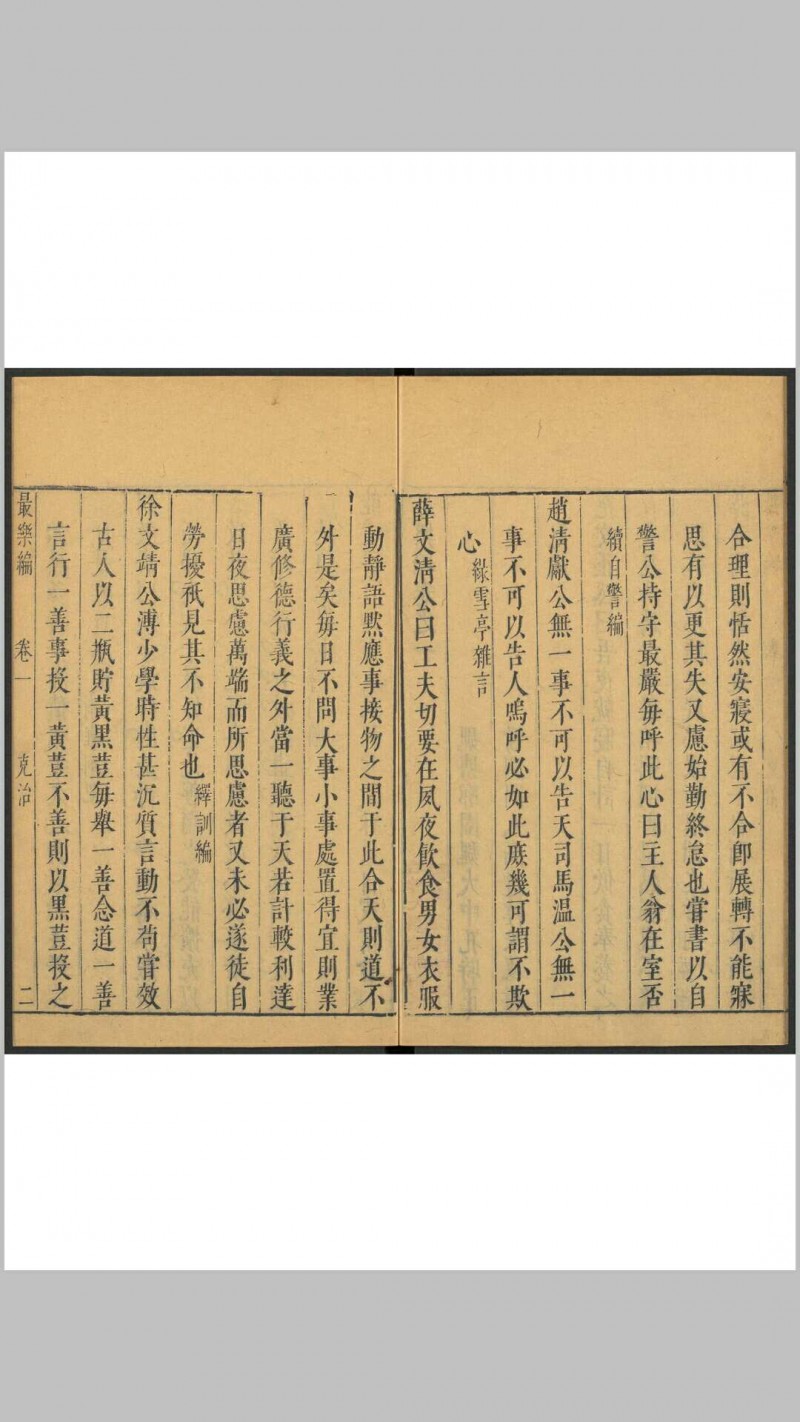 合理則恬然安寢或有不合卽展轉不能寐
思有以更其失又慮始勤終怠也甞書以自
警公持守最嚴每呼此心曰主人翁在室否
續自警編
趙淸獻公無一事不可以告天司馬温公無一
事不可以告人嗚呼必如此庶幾可謂不欺
心綠雪亭雜言
薛文淸公曰工夫切要在夙夜飮食男女衣服
動靜語默應事接物之間于此合天則道不
外是矣每日不問大事小事處置得宜則業
廣修德行義之外當一聽于天若計較利達
日夜思慮萬端而所思慮者又未必遂徒自
勞擾祇見其不知命也繹訓編
徐文靖公溥少學時性甚沉質言動不茍甞效
古人以二瓶貯黃黑荳每舉一善念道一善
言行一善事投一黃荳不善則以黑荳投之
最樂編 卷一 克治 二